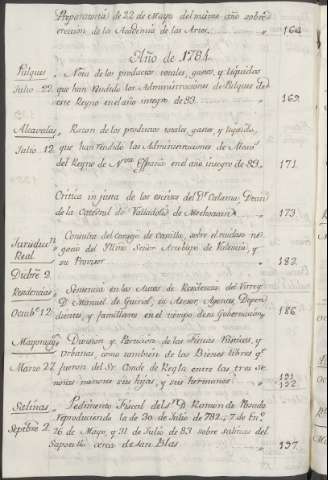 Preponencia de 22 de Mayo del mismo año sobre
ereccion de la Academia de las Artes. 164.
Año de 1784.
Pulques. Nota de los productos totales, gastos, y liquidos
Julio 22. que han rendido las Administraciones de Pulques de
este Reyno en el año integro de 83. 169.
Alcavalas. Razon de los productos totales, gastos, y liquido,
Julio 12. que han rendido las Administraciones de Alcav.s
del Reyno de Nva España en el año integro de 83. 171.
Critica injusta de los escritos del Dr Calama Dean
de la Catedral de Valladolid de Mechoacan. 173.
Jurisdicn Consulta del consejo de Castilla, sobre el ruidoso ne-
Real gocio del Yllmo Señor Arzobispo de Valencia, y
su Provisor 182.
Dicbre 9.
Residencias. Sentencia en los Autos de Residencia del Virrey
D. Manuel de Guirior, su Asesor, Agentes, Depen-
Octubre 12 dientes, y familiares en el tiempo de su Gobernacion 186
Mayorazgo Division y Particion de las Fincas Rusticas, y
Urbanas, como tambien de los Bienes libres qe
Marzo 27. fueron del Sr. Conde de Regla entre las tres se-
ñoras menores sus hijas, y sus hermanos. 191. 192.
Salinas. Pedimento Fiscal del Sr D. Ramon de Posada
reproduciendo los de 30 de Julio de 782, 7 de En.o
Septbre 2. 26 de Mayo, y 31 de Julio de 83 sobre salinas del
Zapotillo cerca de San Blas. 197.